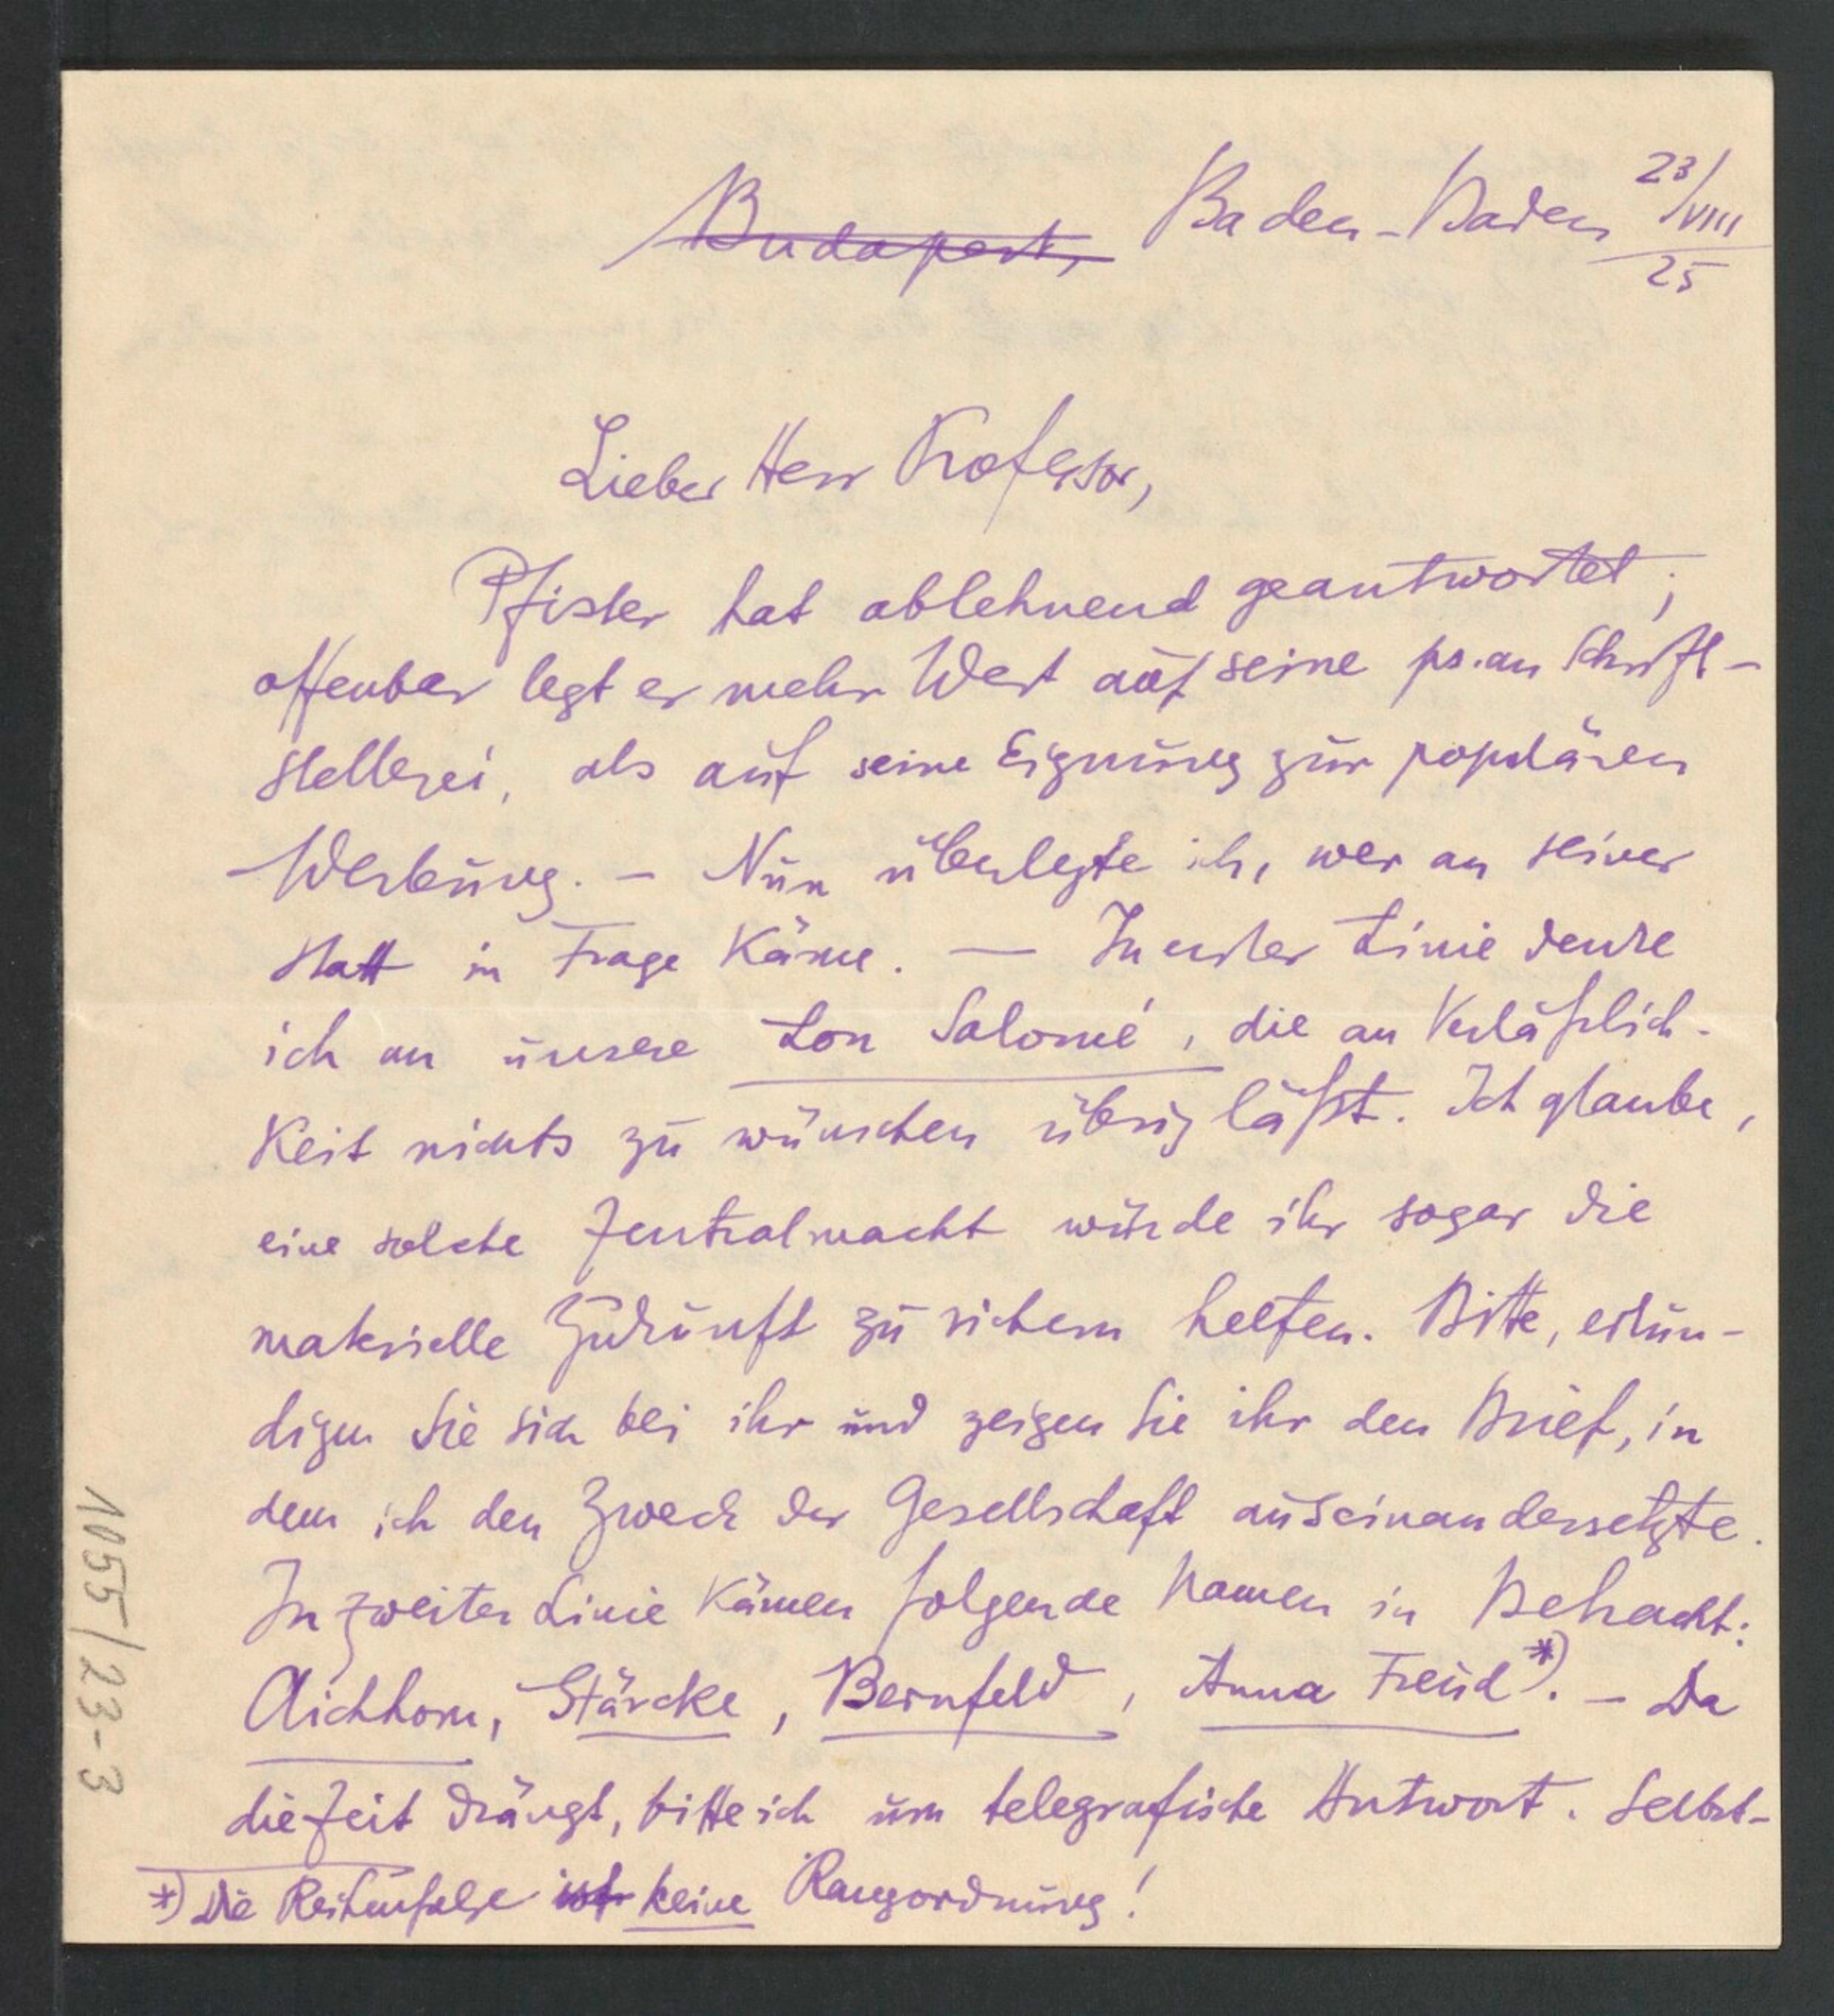 Budapest, Baden-Baden 23/VIII
25
Lieber Herr Professor,
Pfister hat ablehnend geantwortet;
offenbar legt er mehr Wert auf seine ps. an Schrift-
stellerei, als auf seine Eignung zur populären
Werbung. – Nun überlegte ich, wer an seiner
statt in Frage käme. — In erster Linie denke
ich an unsere Lou Salomé, die an Verläßlich-
keit nichts zu wünschen übrig läßt. Ich glaube,
eine solche Zentralmacht würde ihr sogar die
materielle Zukunft zu sichern helfen. Bitte, erkun-
digen Sie sich bei ihr und zeigen Sie ihr den Brief, in
dem ich den Zweck der Gesellschaft auseinandersetzte.
In zweiter Linie kämen folgende Namen in Betracht:
Aichhorn, Stärcke, Bernfeld, Anna Freud*). – Da
die Zeit drängt, bitte ich um telegrafische Antwort. Selbst-
*) Die Reihenfolge ist keine Rangordnung!
1055/23-3